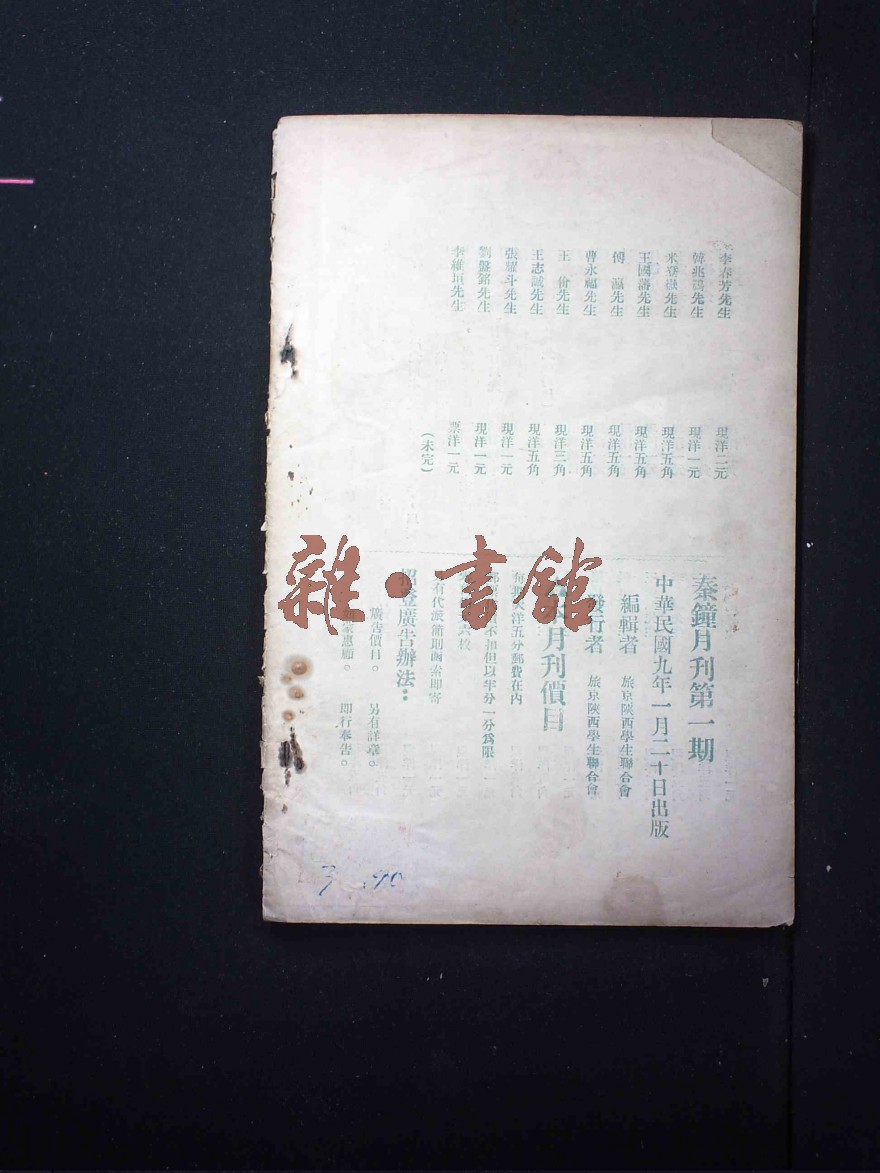 李春芳先生　現洋二元
韓兆鶚先生　現洋一元
米登嶽先生　現洋五角
王國譜先生　現洋五角
傅　瀛先生　現洋五角
曹永福先生　現洋五角
王　偷先生　現洋三角
王志誠先生　現洋五角
張耀斗先生　現洋一元
劉盤銘先生　現洋一元
李維垣先生　票洋一元
（未完）
秦鐘月刊第一期
中華民國九年一月二十日出版
編輯者　旅京陝西學生聯合會
發行者　旅京陝西學生聯合會
月刊價目
洋五分郵費在內
不扣但以半分一分爲限
六枚
有代派簡則函索卽寄
招登廣告辦法：
廣告價目。　另有詳章。
惠顧。　卽行奉告。
雜·書館